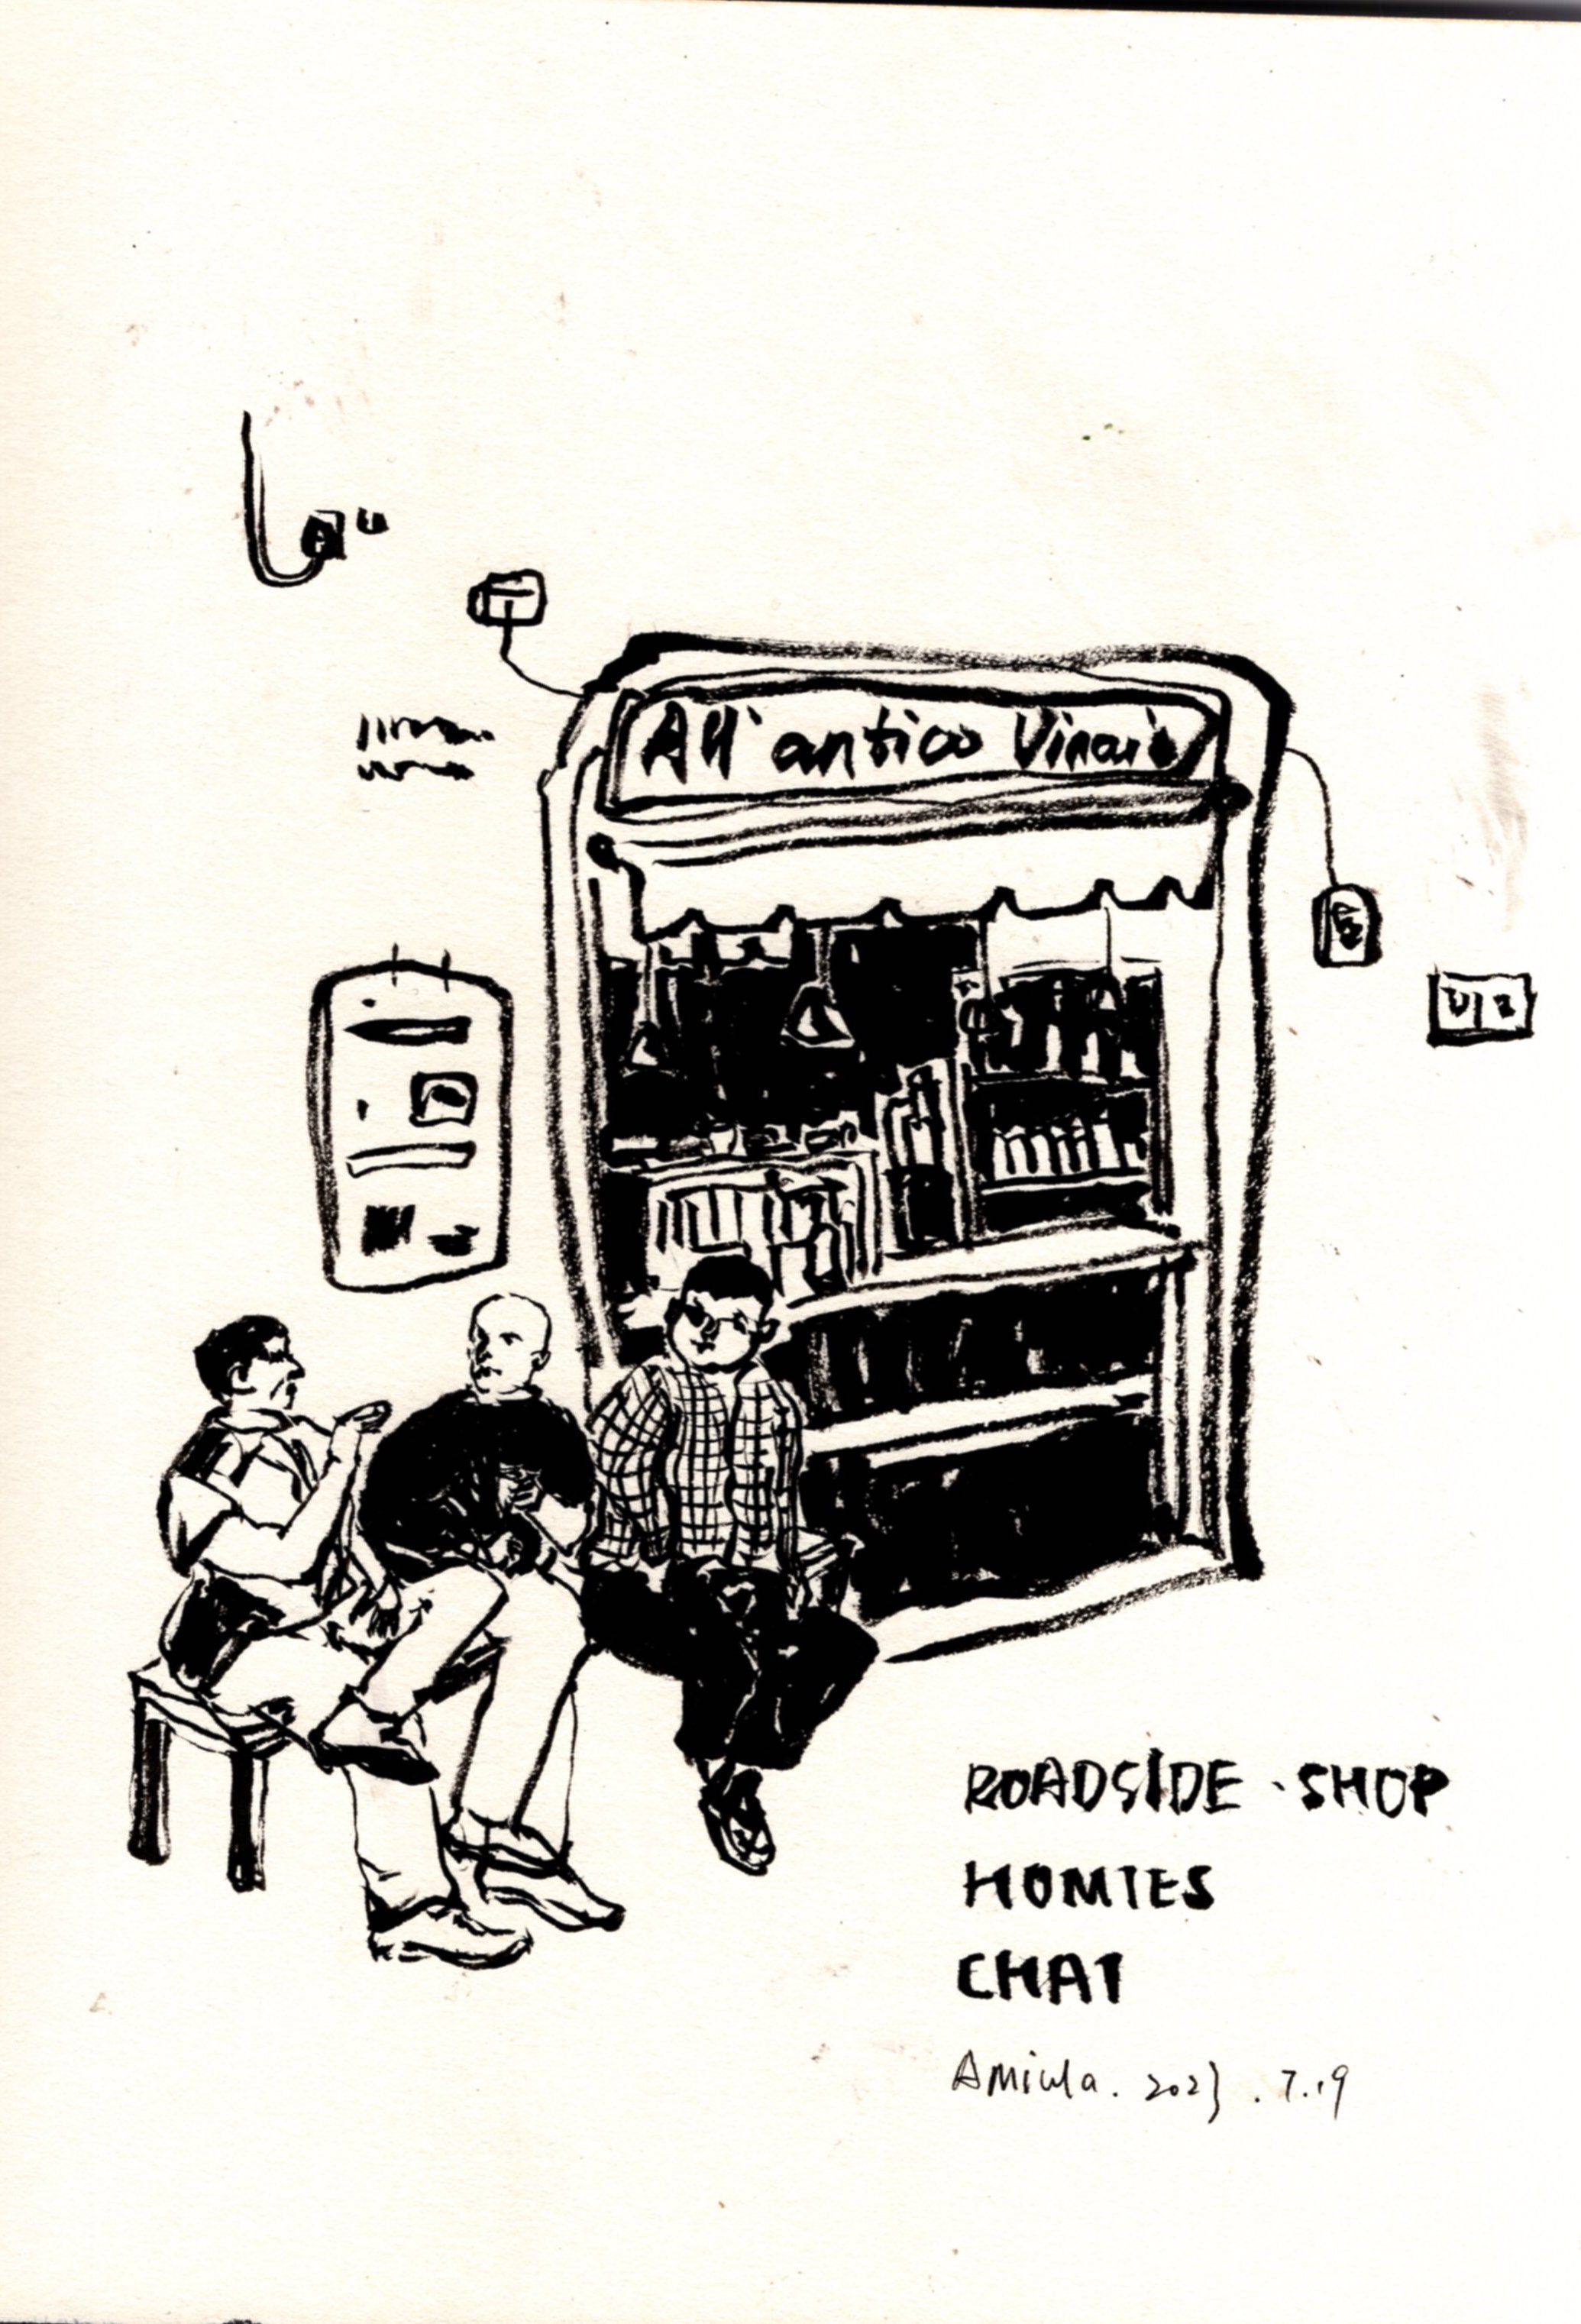 All' antico Vinaio
ROADSIDE · SHOP
HOMIES
CHAT
2023 . 7.19